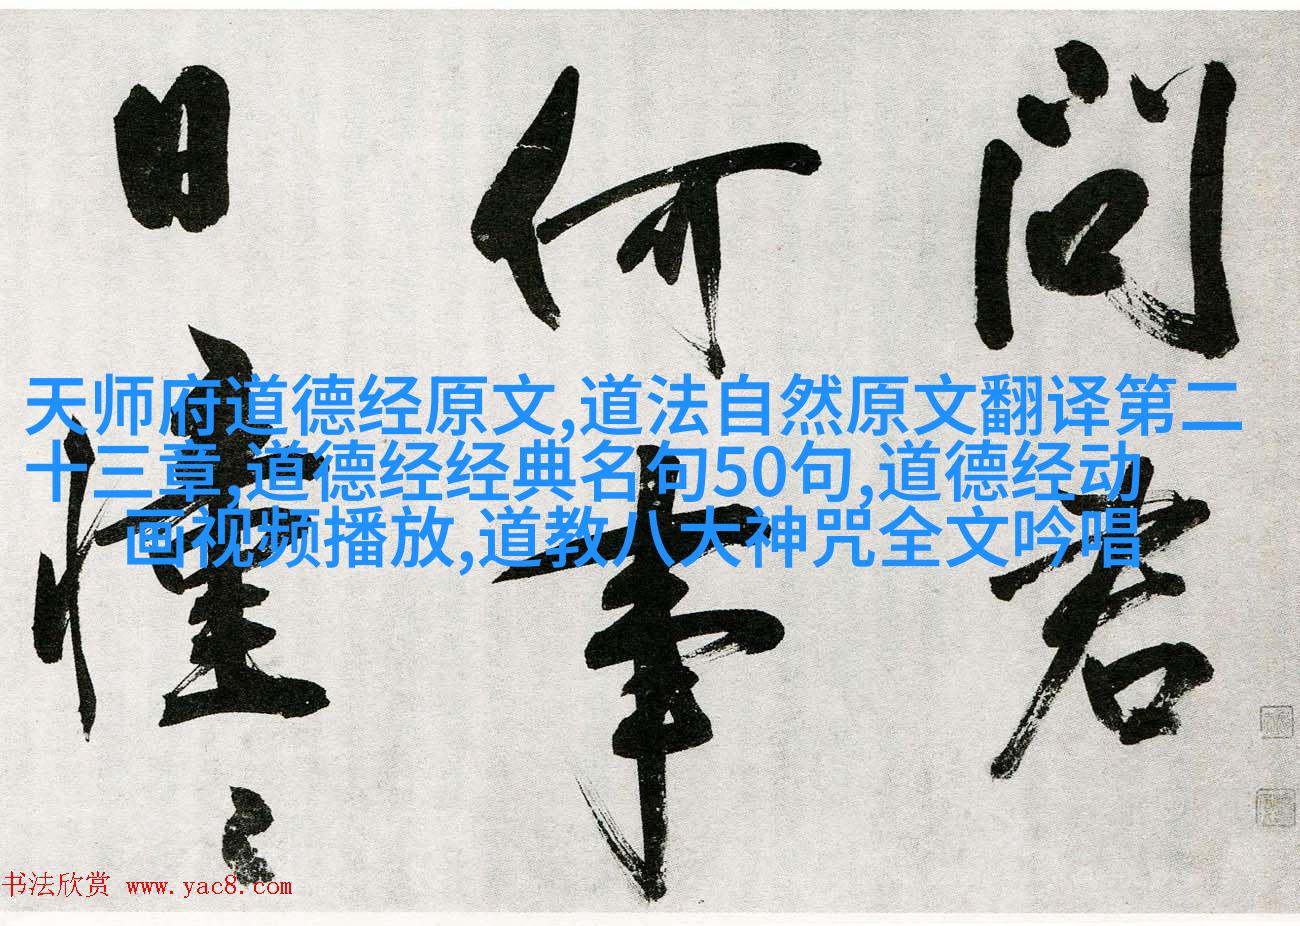 问君
何事
日憧々
天师府道德经原文,道法自然原文翻译第二
十三章,道德经经典名句50句,道德经动
画视频播放,道教八大神咒全文吟唱
书法欣赏 www.yac8.com